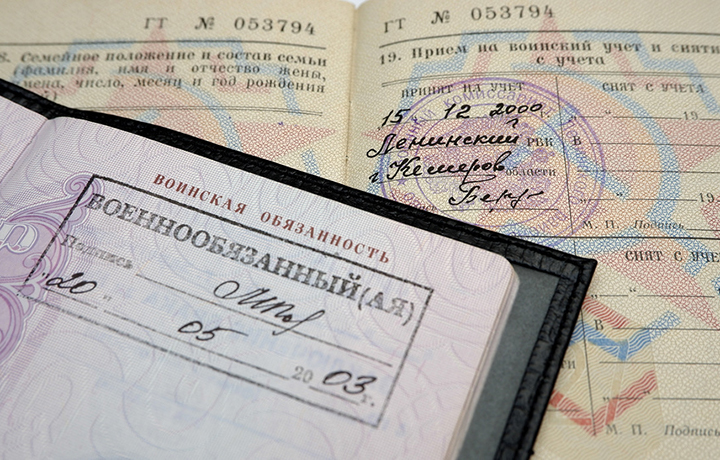 ГТ № 053794
8. Семейное положение и состав семьи
(фамилия, имя и отчество жены,
имена, число, месяц и год рождения
ГТ № 053794
19. Прием на воинский учет и снятие
с учета
ПРИНЯТ НА УЧЕТ
15 12 2000 г.
Ленинский РВК
г Кемеров области
СНЯТ С УЧЕТА
„ “ 19
В
„ “ 19
М. П. Подпись
СНЯТ С УЧЕТА
„ “
В
М. П. Подпись
ВОИНСКАЯ ОБЯЗАННОСТЬ
ВОЕННООБЯЗАННЫЙ(АЯ)
Подпись
"20"
05
2003.г.